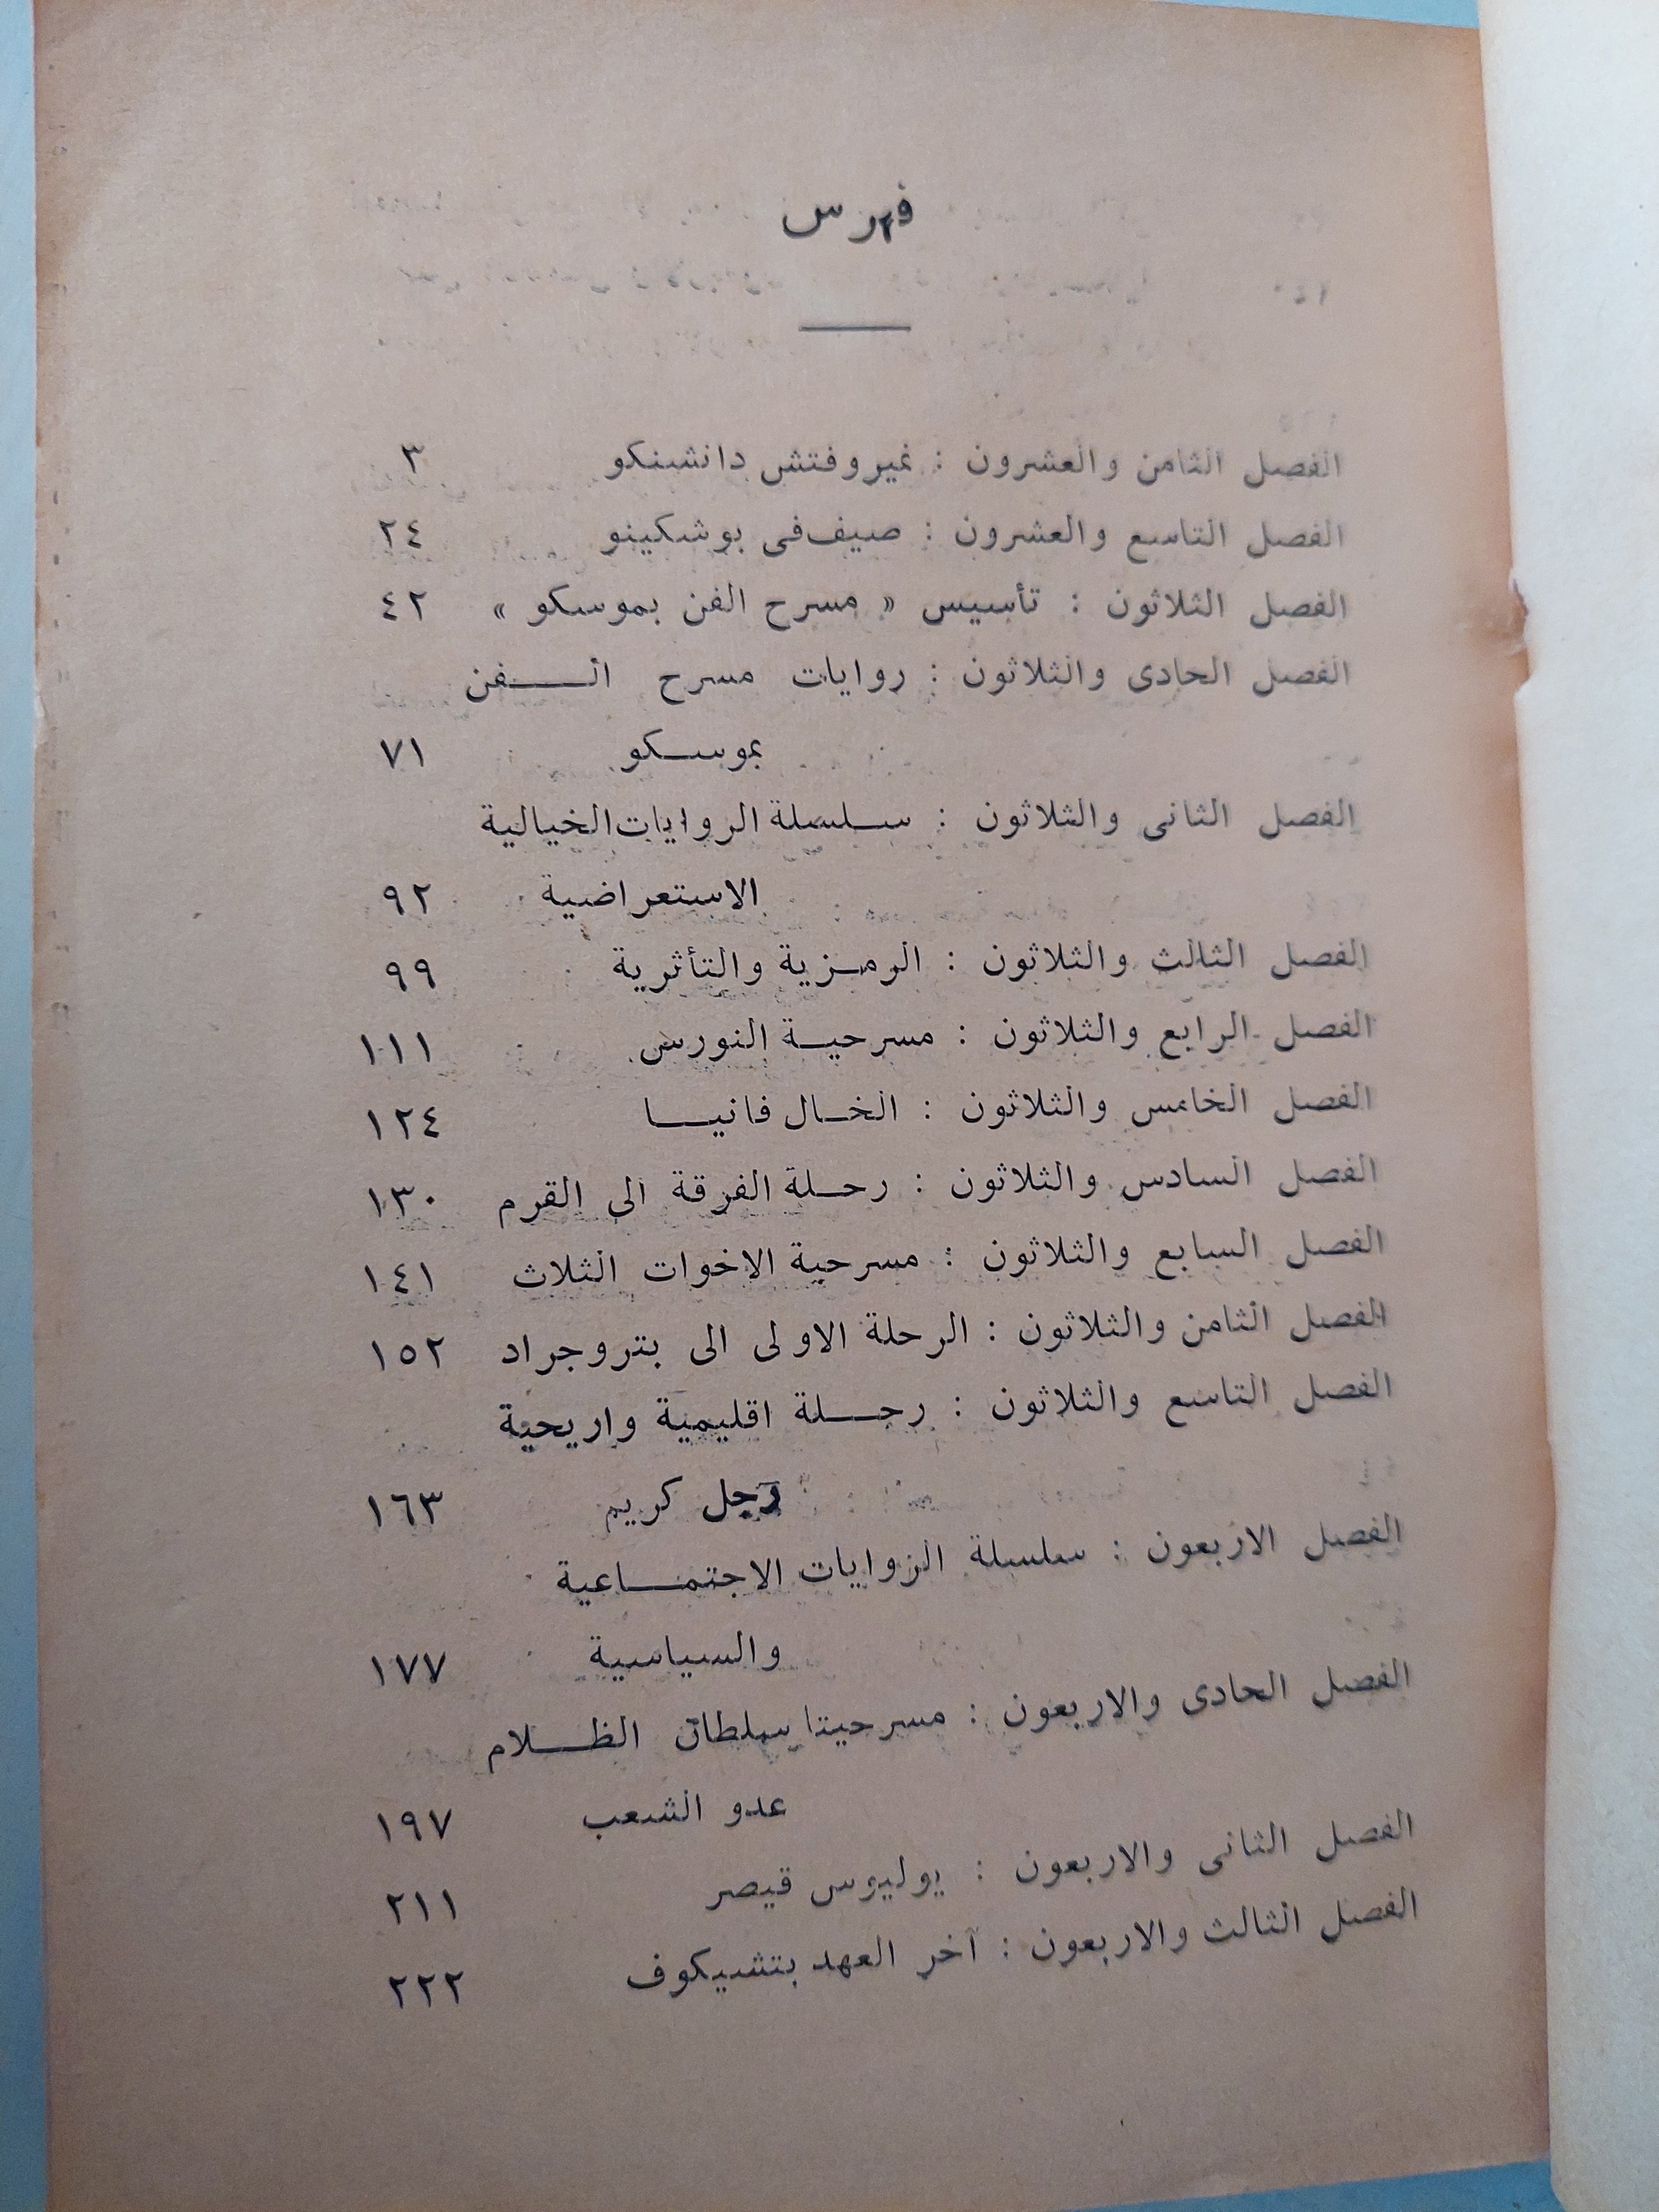 فهرس
الفصل الثامن والعشرون : نميروفتش دانشنكو ٣
الفصل التاسع والعشرون : صيف فى بوشكينو ٢٤
الفصل الثلاثون : تأسيس « مسرح الفن بموسكو » ٤٢
الفصل الحادى والثلاثون : روايات مسرح الفن
بموسكو ٧١
الفصل الثانى والثلاثون : سلسلة الروايات الخيالية
الاستعراضية ٩٢
الفصل الثالث والثلاثون : الرمزية والتأثرية ٩٩
الفصل الرابع والثلاثون : مسرحية النورس ١١١
الفصل الخامس والثلاثون : الخال فانيا ١٢٤
الفصل السادس والثلاثون : رحلة الفرقة الى القرم ١٣٠
الفصل السابع والثلاثون : مسرحية الاخوات الثلاث ١٤١
الفصل الثامن والثلاثون : الرحلة الاولى الى بتروجراد ١٥٢
الفصل التاسع والثلاثون : رحلة اقليمية واريحية
رجل كريم ١٦٣
الفصل الاربعون : سلسلة الروايات الاجتماعية
والسياسية ١٧٧
الفصل الحادى والاربعون : مسرحيتا سلطان الظلام
عدو الشعب ١٩٧
الفصل الثانى والاربعون : يوليوس قيصر ٢١١
الفصل الثالث والاربعون : آخر العهد بتشيكوف ٢٢٢